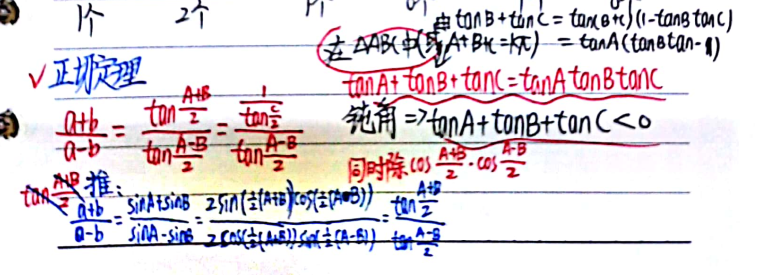 1个 2个
由tanB+tanC=tan(B+C)(1-tanBtanC)
在△ABC中(或A+B+C=kπ) =tanA(tanBtan-1)
✓正切定理
tanA+tanB+tanC=tanAtanBtanC
\frac{a+b}{a-b}=\frac{tan\frac{A+B}{2}}{tan\frac{A-B}{2}}=\frac{\frac{1}{tan\frac{C}{2}}}{tan\frac{A-B}{2}}
钝角=>tanA+tanB+tanC<0
同时除cos\frac{A+B}{2}·cos\frac{A-B}{2}
推:
\frac{a+b}{a-b}=\frac{sinA+sinB}{sinA-sinB}=\frac{2sin(\frac{1}{2}(A+B))cos(\frac{1}{2}(A-B))}{2cos(\frac{1}{2}(A+B))sin(\frac{1}{2}(A-B))}=\frac{tan\frac{A+B}{2}}{tan\frac{A-B}{2}}